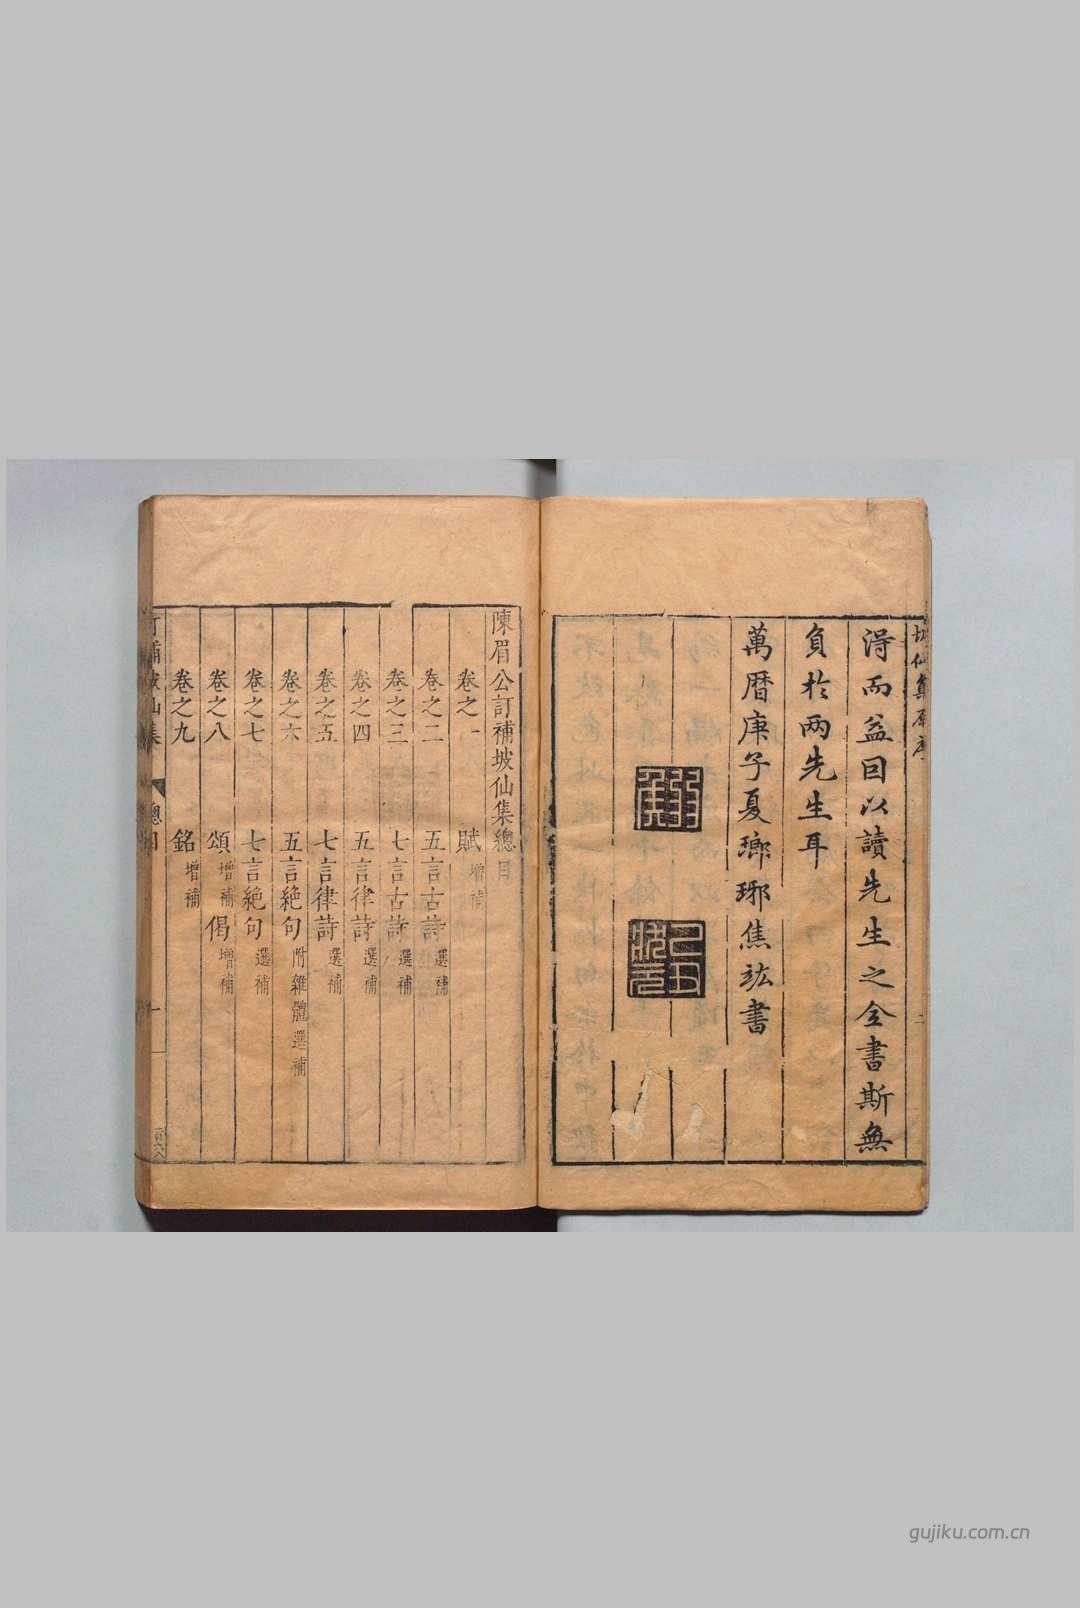 得而益因以讀先生之全書斯無
負於两先生耳
萬曆庚子夏瑯琊焦竑書
弱侯
己丑狀元
二
陳眉公訂補坡仙集總目
卷之一 賦增補
卷之二 五言古詩選補
卷之三 七言古詩選補
卷之四 五言律詩選補
卷之五 七言律詩選補
卷之六 五言絕句附雜體選補
卷之七 七言絕句選補
卷之八 頌增補 偈增補
卷之九 銘增補
訂補坡仙集 總目 一
gujiku.com.cn